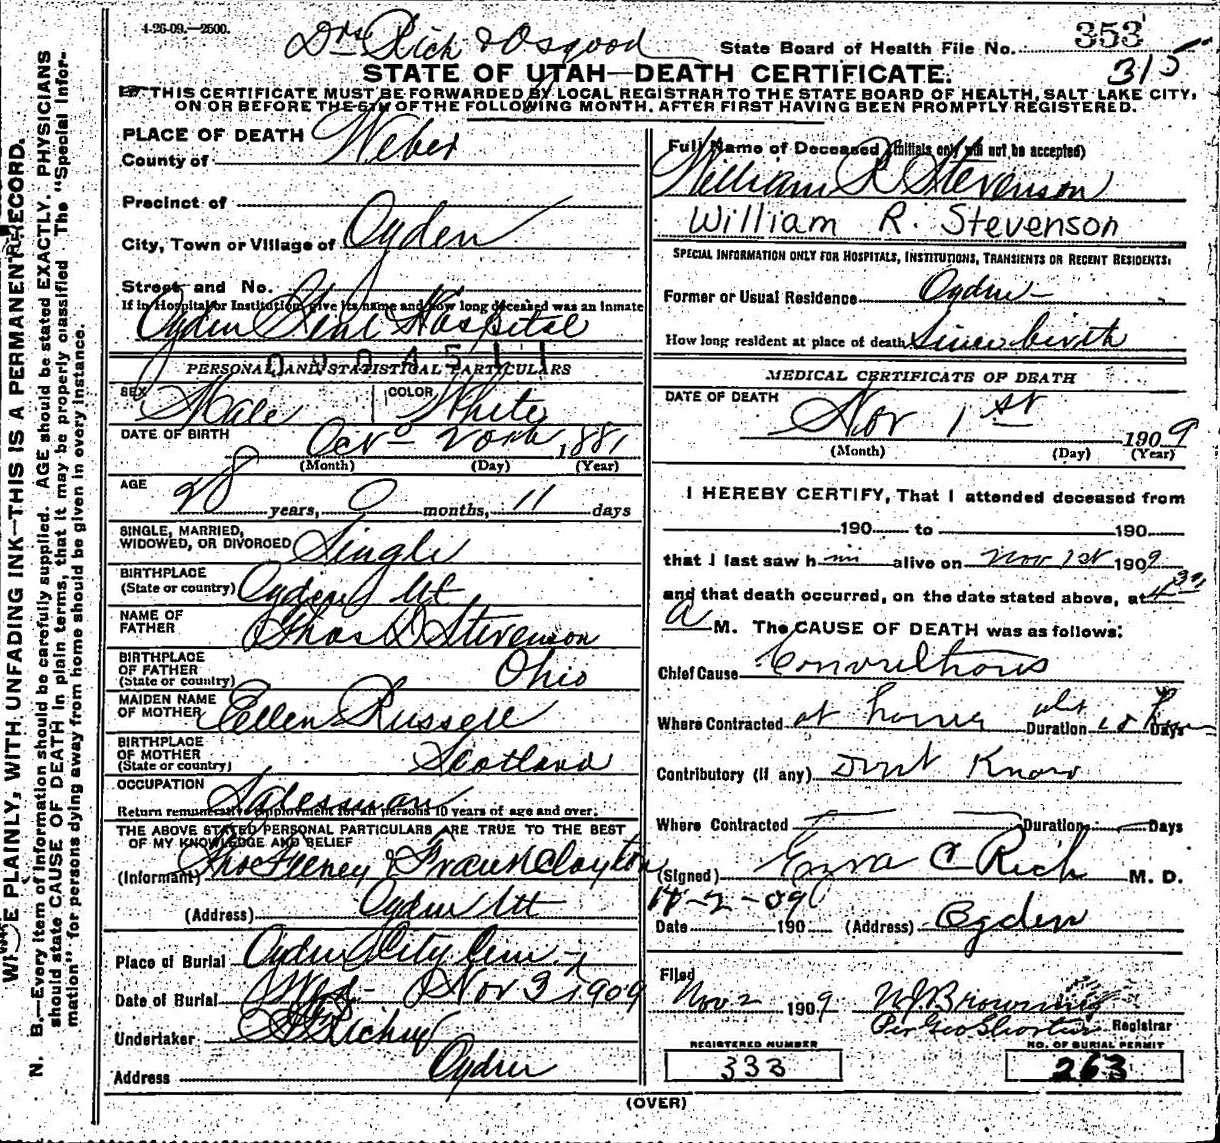 4-26-09.—2500.
Drs Rich & Osgood
State Board of Health File No. 353
315
STATE OF UTAH—DEATH CERTIFICATE.
THIS CERTIFICATE MUST BE FORWARDED BY LOCAL REGISTRAR TO THE STATE BOARD OF HEALTH, SALT LAKE CITY,
ON OR BEFORE THE 5TH OF THE FOLLOWING MONTH, AFTER FIRST HAVING BEEN PROMPTLY REGISTERED.
WRITE PLAINLY, WITH UNFADING INK—THIS IS A PERMANENT RECORD.
N. B.—Every item of information should be carefully supplied. AGE should be stated EXACTLY. PHYSICIANS
should state CAUSE OF DEATH in plain terms, that it may be properly classified. The "Special Infor-
mation" for persons dying away from home should be given in every instance.
PLACE OF DEATH
County of Weber
Precinct of
City, Town or Village of Ogden
Street and No.
If in Hospital or Institution, give its name and how long deceased was an inmate
Ogden Genl Hospital
0904511
PERSONAL AND STATISTICAL PARTICULARS
SEX Male COLOR White
DATE OF BIRTH Oct 20th 1881
(Month) (Day) (Year)
AGE
28 years, 0 months, 11 days
SINGLE, MARRIED,
WIDOWED, OR DIVORCED Single
BIRTHPLACE
(State or country) Ogden Ut
NAME OF
FATHER Thos D Stevenson
BIRTHPLACE
OF FATHER
(State or country) Ohio
MAIDEN NAME
OF MOTHER Ellen Russell
BIRTHPLACE
OF MOTHER
(State or country) Scotland
OCCUPATION Salesman
Return remunerative employment for all persons 10 years of age and over.
THE ABOVE STATED PERSONAL PARTICULARS ARE TRUE TO THE BEST
OF MY KNOWLEDGE AND BELIEF
(Informant) Thos Feeney & Frank Clayton
(Address) Ogden Ut
Place of Burial Ogden City Cem
Date of Burial Wed Nov 3 1909
Undertaker Richey
Address Ogden
Full Name of Deceased (Initials only will not be accepted)
William R Stevenson
William R. Stevenson
SPECIAL INFORMATION ONLY FOR HOSPITALS, INSTITUTIONS, TRANSIENTS OR RECENT RESIDENTS:
Former or Usual Residence Ogden
How long resident at place of death Since birth
MEDICAL CERTIFICATE OF DEATH
DATE OF DEATH
Nov 1st 1909
(Month) (Day) (Year)
I HEREBY CERTIFY, That I attended deceased from
190 to 190
that I last saw him alive on Nov 1st 1909
and that death occurred, on the date stated above, at 4 30
A M. The CAUSE OF DEATH was as follows:
Chief Cause Convulsions
Where Contracted at home Duration Days
Contributory (if any) Dont Know
Where Contracted Duration Days
(Signed) Ezra C Rich M. D.
11-2-09
Date 190 (Address) Ogden
Filed
Nov 2 1909 W J Browning
Per Geo Shorten Registrar
REGISTERED NUMBER
333
NO. OF BURIAL PERMIT
263
(OVER)